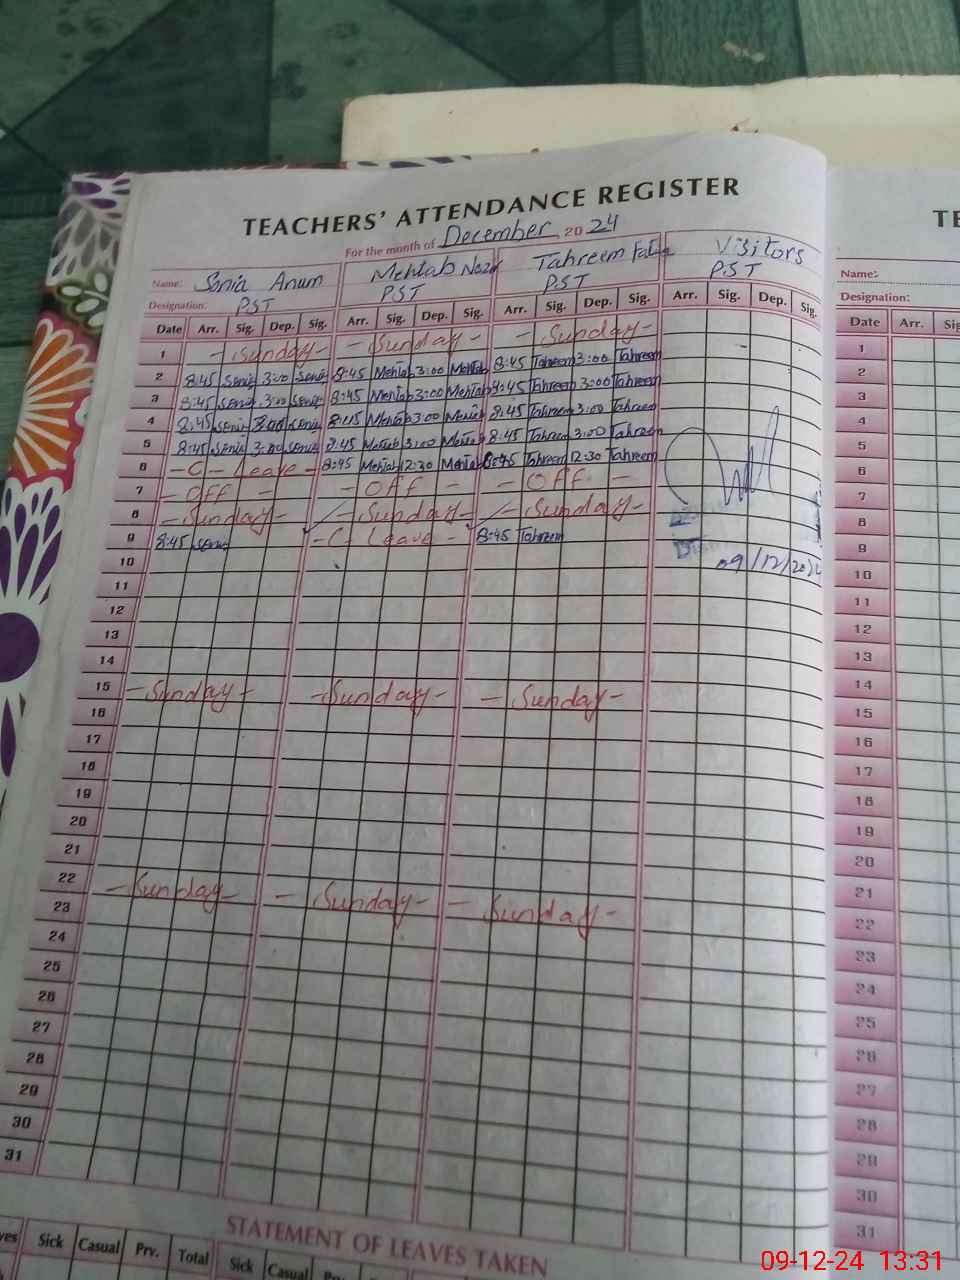 TEACHERS' ATTENDANCE REGISTER
For the month of December 2024
Name: Sonia Anum Mehtab Tahreem Visitors
Designation: PST PST PST PST
Date Arr. Sig. Dep. Sig. Arr. Sig. Dep. Sig. Arr. Sig. Dep. Sig. Arr. Sig. Dep. Sig.
1 - Sunday - - Sunday - - Sunday -
2 8:45 Sonia 3:00 Sonia 8:45 Mehtab 3:00 Mehtab 8:45 Tahreem 3:00 Tahreem
3 8:45 Sonia 3:00 Sonia 8:45 Mehtab 3:00 Mehtab 8:45 Tahreem 3:00 Tahreem
4 8:45 Sonia 3:00 Sonia 8:45 Mehtab 3:00 Mehtab 8:45 Tahreem 3:00 Tahreem
5 8:45 Sonia 3:00 Sonia 8:45 Mehtab 3:00 Mehtab 8:45 Tahreem 3:00 Tahreem
6 - C - Leave - 8:45 Mehtab 12:30 Mehtab 8:45 Tahreem 12:30 Tahreem
7 - OFF - - OFF - - OFF -
8 - Sunday - - Sunday - - Sunday -
9 8:45 Sonia - C - Leave - 8:45 Tahreem
09/12/202
10
11
12
13
14
15 - Sunday - - Sunday - - Sunday -
16
17
18
19
20
21
22 - Sunday - - Sunday - - Sunday -
23
24
25
26
27
28
29
30
31
STATEMENT OF LEAVES TAKEN
Sick Casual Prv. Total Sick Casual
TE
Name:
Designation:
Date Arr.
1
2
3
4
5
6
7
8
9
10
11
12
13
14
15
16
17
18
19
20
21
22
23
24
25
26
27
28
29
30
31
09-12-24 13:31